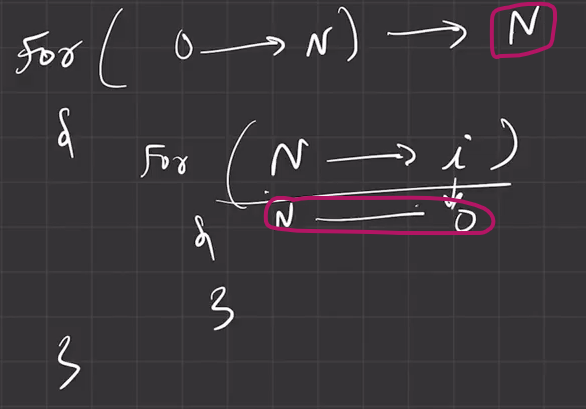 For ( 0 → N ) → N
{
For ( N → i )
N — 0
{
}
}